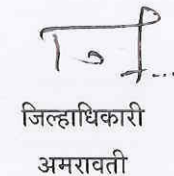 जिल्हाधिकारी
अमरावती